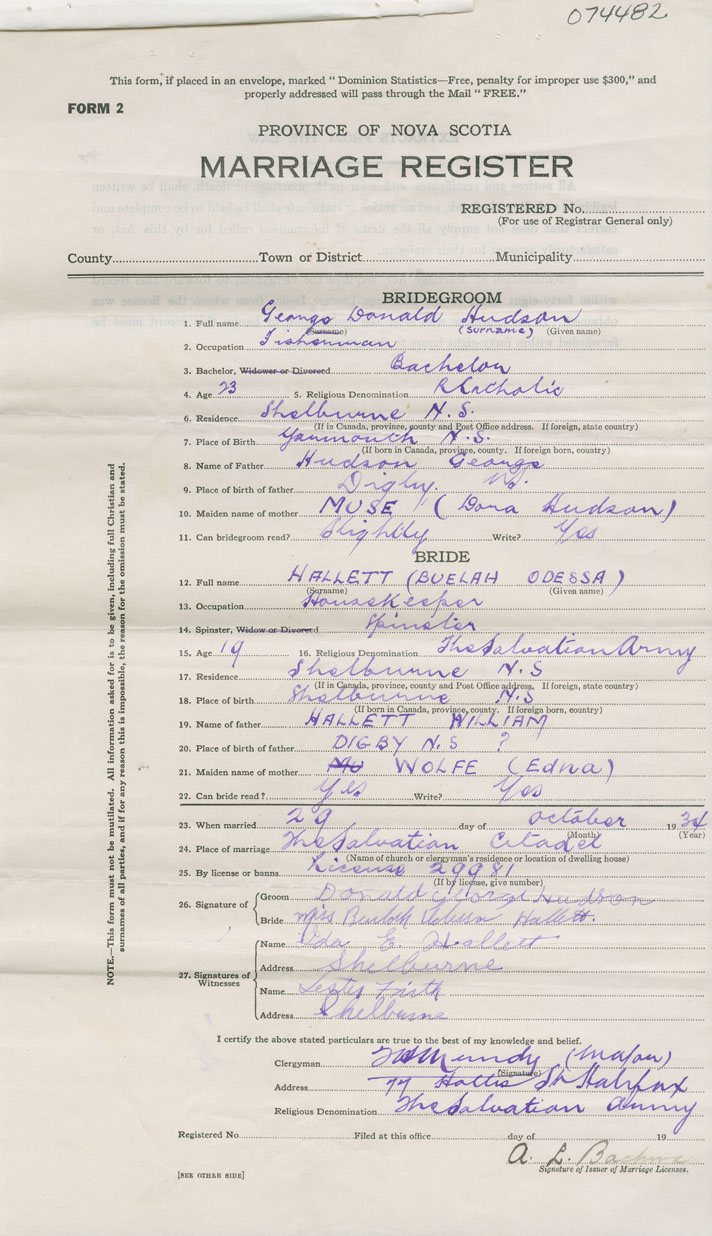 074482
This form, if placed in an envelope, marked " Dominion Statistics—Free, penalty for improper use $300," and
properly addressed will pass through the Mail " FREE."
FORM 2
PROVINCE OF NOVA SCOTIA
MARRIAGE REGISTER
REGISTERED No.
(For use of Registrar General only)
County Town or District Municipality
BRIDEGROOM
1. Full name George Donald Hudson
(Surname) (Surname) (Given name)
2. Occupation Fisherman
3. Bachelor, Widower or Divorced Bachelor
4. Age 23 5. Religious Denomination R Catholic
6. Residence Shelburne N.S.
(If in Canada, province, county and Post Office address. If foreign, state country)
7. Place of Birth Yarmouth N.S.
(If born in Canada, province, county. If foreign born, country)
8. Name of Father Hudson George
9. Place of birth of father Digby.
10. Maiden name of mother MUSE (Dora Hudson)
11. Can bridegroom read? Slightly Write? Yes
BRIDE
12. Full name HALLETT (BUELAH ODESSA)
(Surname) (Given name)
13. Occupation Housekeeper
14. Spinster, Widow or Divorced Spinster
15. Age 19 16. Religious Denomination The Salvation Army
17. Residence Shelbourne N.S
(If in Canada, province, county and Post Office address. If foreign, state country)
18. Place of birth Shelbourne N.S
(If born in Canada, province, county. If foreign born, country)
19. Name of father HALLETT WILLIAM
20. Place of birth of father DIGBY N.S ?
21. Maiden name of mother WOLFE (Edna)
22. Can bride read? Yes Write? Yes
23. When married 29 day of October 1934
(Month) (Year)
24. Place of marriage The Salvation Citadel
(Name of church or clergyman's residence or location of dwelling house)
25. By license or banns License 29981
(If by license, give number)
26. Signature of
Groom Donald George Hudson
Bride Mrs Hallett.
27. Signatures of Witnesses
Name Ida E. Hallett
Address Shelburne
Name Firth
Address Shelburne
I certify the above stated particulars are true to the best of my knowledge and belief.
Clergyman Mundy (Major)
(Signature)
Address 77 Hollis St Halifax
Religious Denomination The Salvation Army
Registered No. Filed at this office day of 19
A. L.
Signature of Issuer of Marriage Licenses.
[SEE OTHER SIDE]
NOTE.—This form must not be mutilated. All information asked for is to be given, including full Christian and
surnames of all parties, and if for any reason this is impossible, the reason for the omission must be stated.